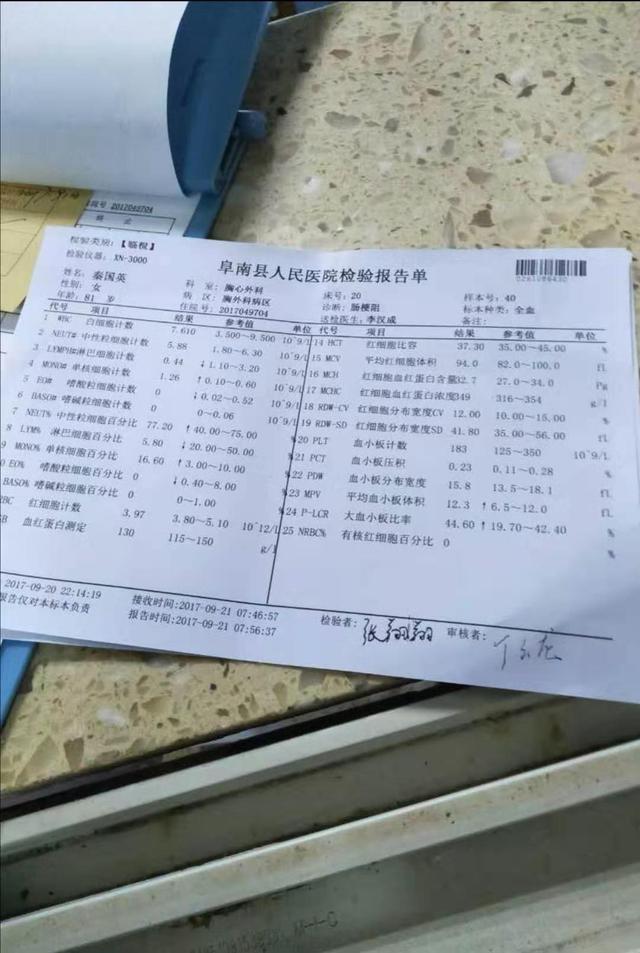 住院号 2017049704
终 止
检验类别：【临检】
检验仪器：XN-3000
阜南县人民医院检验报告单
0261086430
姓名：秦国英 科 室：胸心外科 床号：20 样本号：40
性别：女 病 区：胸外科病区 诊断：肠梗阻 标本种类：全血
年龄：81 岁 住院号：2017049704 送检医生：李汉成 备注：
代号 项目 结果 参考值 单位 代号 项目 结果 参考值 单位
1 WBC 白细胞计数 7.610 3.500~9.500 10^9/L
2 NEUT# 中性粒细胞计数 5.88 1.80~6.30 10^9/L
3 LYMPH# 淋巴细胞计数 0.44 ↓1.10~3.20 10^9/L
4 MONO# 单核细胞计数 1.26 ↑0.10~0.60 10^9/L
5 EO# 嗜酸粒细胞计数 0 ↓0.02~0.52 10^9/L
6 BASO# 嗜碱粒细胞计数 0 0~0.06 10^9/L
7 NEUT% 中性粒细胞百分比 77.20 ↑40.00~75.00 %
8 LYM% 淋巴细胞百分比 5.80 ↓20.00~50.00 %
MONO% 单核细胞百分比 16.60 ↑3.00~10.00 %
0 EO% 嗜酸粒细胞百分比 0 ↓0.40~8.00 %
BASO% 嗜碱粒细胞百分比 0 0~1.00 %
RBC 红细胞计数 3.97 3.80~5.10 10^12/L
GB 血红蛋白测定 130 115~150 g/l
14 HCT 红细胞比容 37.30 35.00~45.00 %
15 MCV 平均红细胞体积 94.0 82.0~100.0 fL
16 MCH 红细胞血红蛋白含量 32.7 27.0~34.0 Pg
17 MCHC 红细胞血红蛋白浓度 349 316~354 g/l
18 RDW-CV 红细胞分布宽度CV 12.00 10.00~15.00 %
19 RDW-SD 红细胞分布宽度SD 41.80 35.00~56.00 fL
20 PLT 血小板计数 183 125~350 10^9/L
21 PCT 血小板压积 0.23 0.11~0.28 %
22 PDW 血小板分布宽度 15.8 13.5~18.1 fL
23 MPV 平均血小板体积 12.3 ↑6.5~12.0 fL
24 P-LCR 大血小板比率 44.60 ↑19.70~42.40 %
25 NRBC% 有核红细胞百分比 0 %
2017-09-20 22:14:19 接收时间：2017-09-21 07:46:57 检验者：张翔翔 审核者：
报告仅对本标本负责 报告时间：2017-09-21 07:56:37